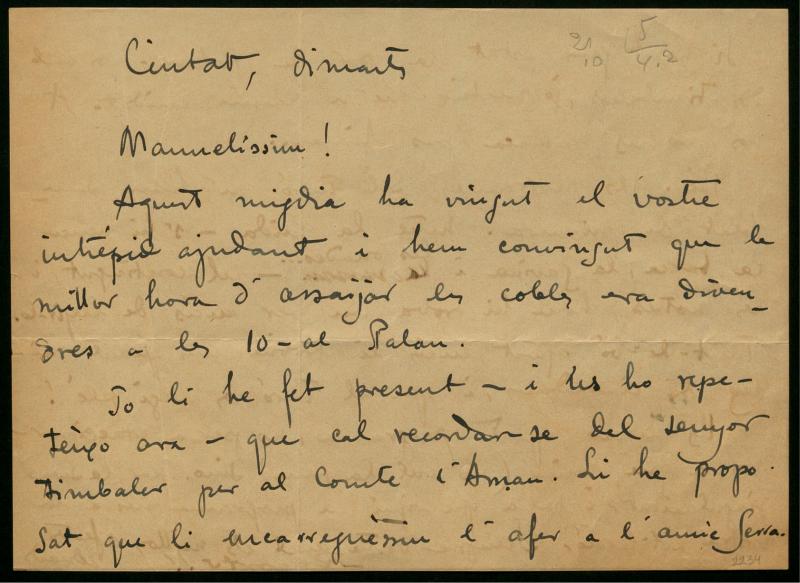 Ciutat, dimarts
5
4.2
Manuelíssim!
Aquest migdia ha vingut el vostre
intrépid ajudant i hem convingut que la
millor hora d'assaijar les cobles era diven-
dres a les 10 - al Palau.
Jo li he fet present - i us ho repe-
teixo ara - que cal recordar-se del senyor
timbaler per al Comte l'Arnau. Li he propo-
sat que li encarreguéssim l'afer a l'amic Serra.
2234